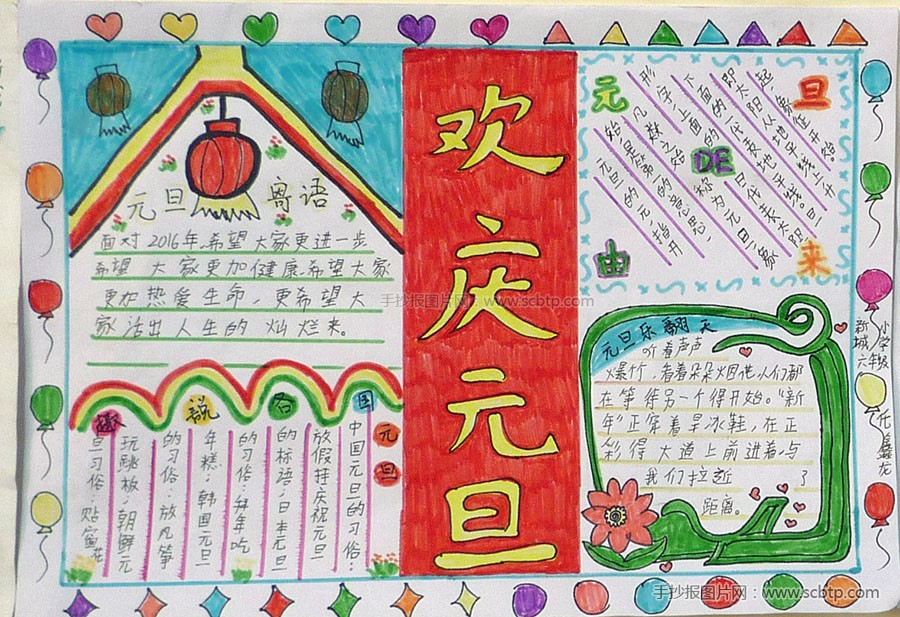 欢庆元旦
元旦 寄语
面对2016年,希望大家更进一步
希望 大家更加健康,希望大家
更加热爱生命,更希望大
家活出人生的灿烂来。
手抄报图片网:www.scbtp.com
趣说各国元旦
中国元旦的习俗:
放假挂庆祝元旦
的标语;日本元旦
的习俗:拜年吃
年糕;韩国元旦
的习俗:放风筝
玩跳板;朝鲜元
旦习俗:贴窗花
元旦DE由来
起,象征开始。
即太阳从地平线上升
下面的一代表地平线。旦
形字,上面的日代表太阳
凡数之始称为元旦,象
始是第一的意思,
元旦的元指开
元旦乐翻天
听着声声
爆竹,看着朵朵烟花,人们都
在等待另一个得开始。“新
年”正穿着旱冰鞋,在正
彩得大道上前进着,与
我们拉近了
距离。
新城小学
六年级
任鑫龙
手抄报图片网:www.scbtp.com